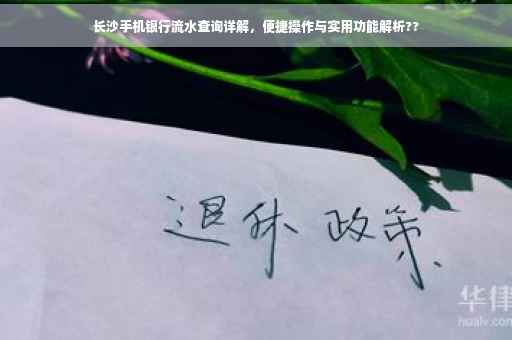 长沙手机银行流水查询详解，便捷操作与实用功能解析??
退休 政策
华律
hualv.com